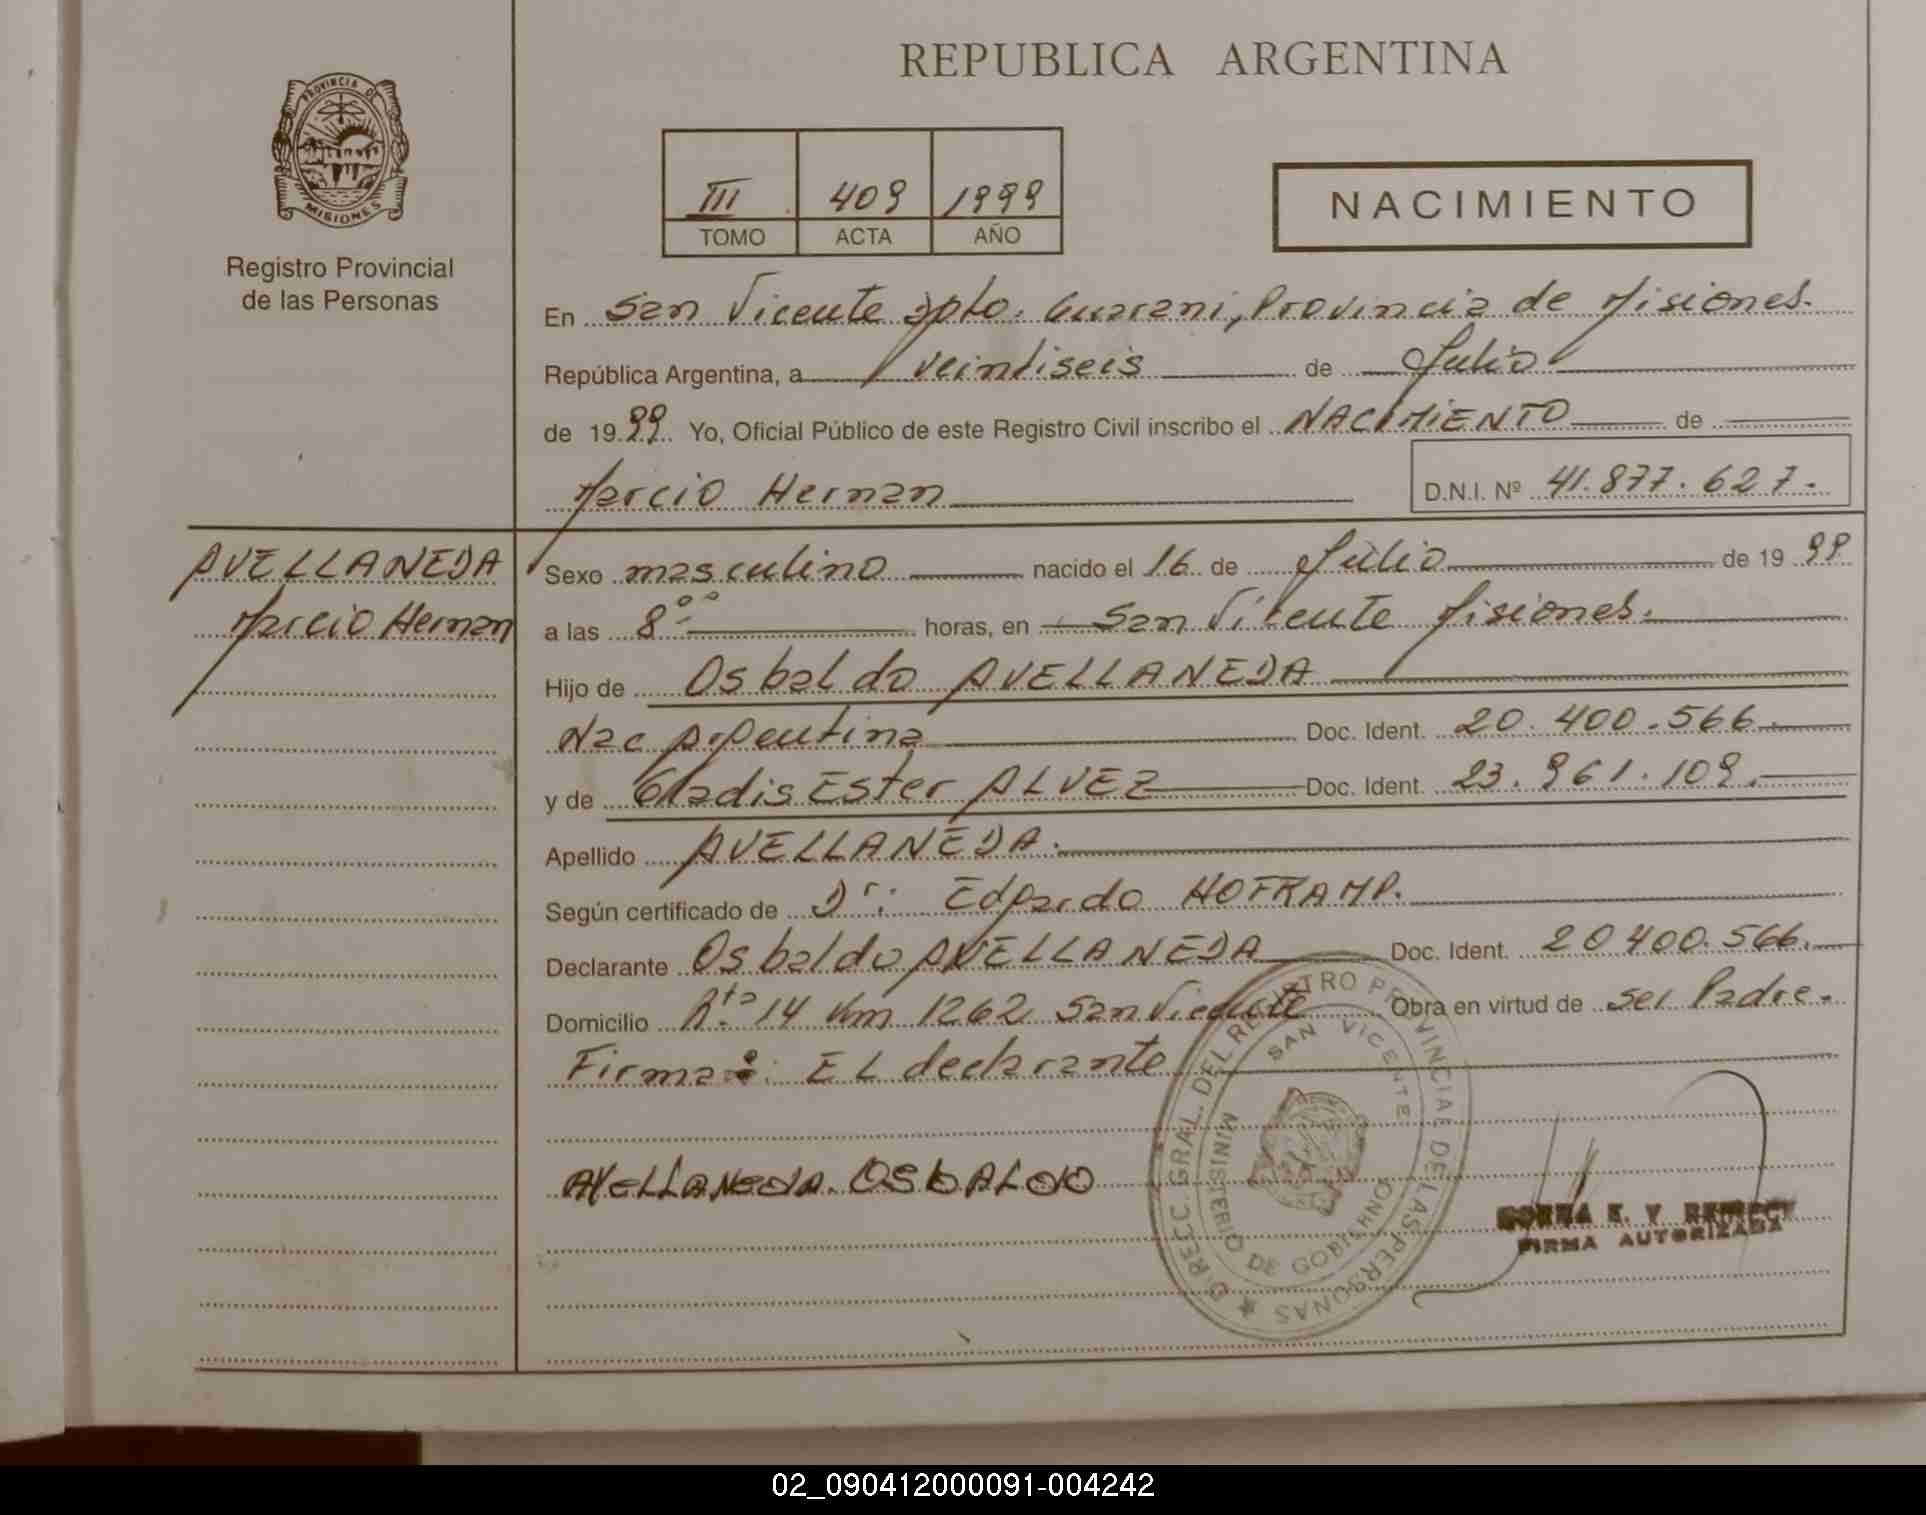 REPUBLICA ARGENTINA
PROVINCIA DE
MISIONES
Registro Provincial
de las Personas
III 409 1999
TOMO ACTA AÑO
NACIMIENTO
En San Vicente Dpto. Guarani, Provincia de Misiones.
República Argentina, a veintiseis de Julio
de 1999 Yo, Oficial Público de este Registro Civil inscribo el NACIMIENTO de
Marcio Hernan D.N.I. Nº 41.877.627.
AVELLANEDA
Marcio Hernan
Sexo masculino nacido el 16 de Julio de 1999
a las 8°° horas, en San Vicente Misiones.
Hijo de Osbaldo AVELLANEDA
Nac Argentina Doc. Ident. 20.400.566.
y de Gladis Ester ALVEZ Doc. Ident. 23.961.109.
Apellido AVELLANEDA.
Según certificado de Dr: Edgardo HOFKAMP.
Declarante Osbaldo AVELLANEDA Doc. Ident. 20400.566.
Domicilio Rta 14 Km 1262 San Vicente Obra en virtud de ser Padre.
Firma: EL declarante
AVELLANEDA OSBALDO
DIRECC. GRAL. DEL REGISTRO PROVINCIAL DE LAS PERSONAS
SAN VICENTE
MINISTERIO DE GOBIERNO
E. V.
FIRMA AUTORIZADA
02_090412000091-004242